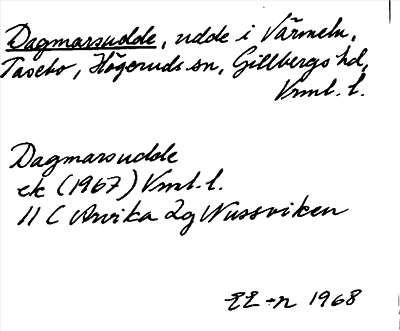 Dagmarsudde, udde i Värmeln,
Tasebo, Högeruds sn, Gillbergs hd,
Vrml. l.
Dagmarsudde
ek (1967) Vrml. l.
11 C Arvika 2g Nussviken
1968